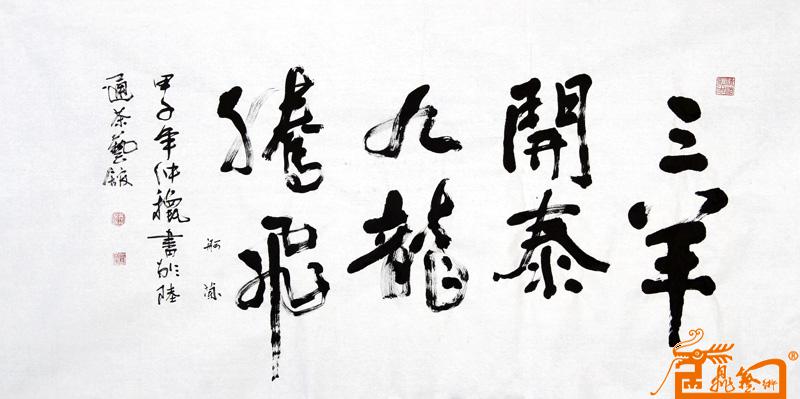 三羊
開泰
九龍
騰飛
甲子年仲穐書於陸
通茶藝館